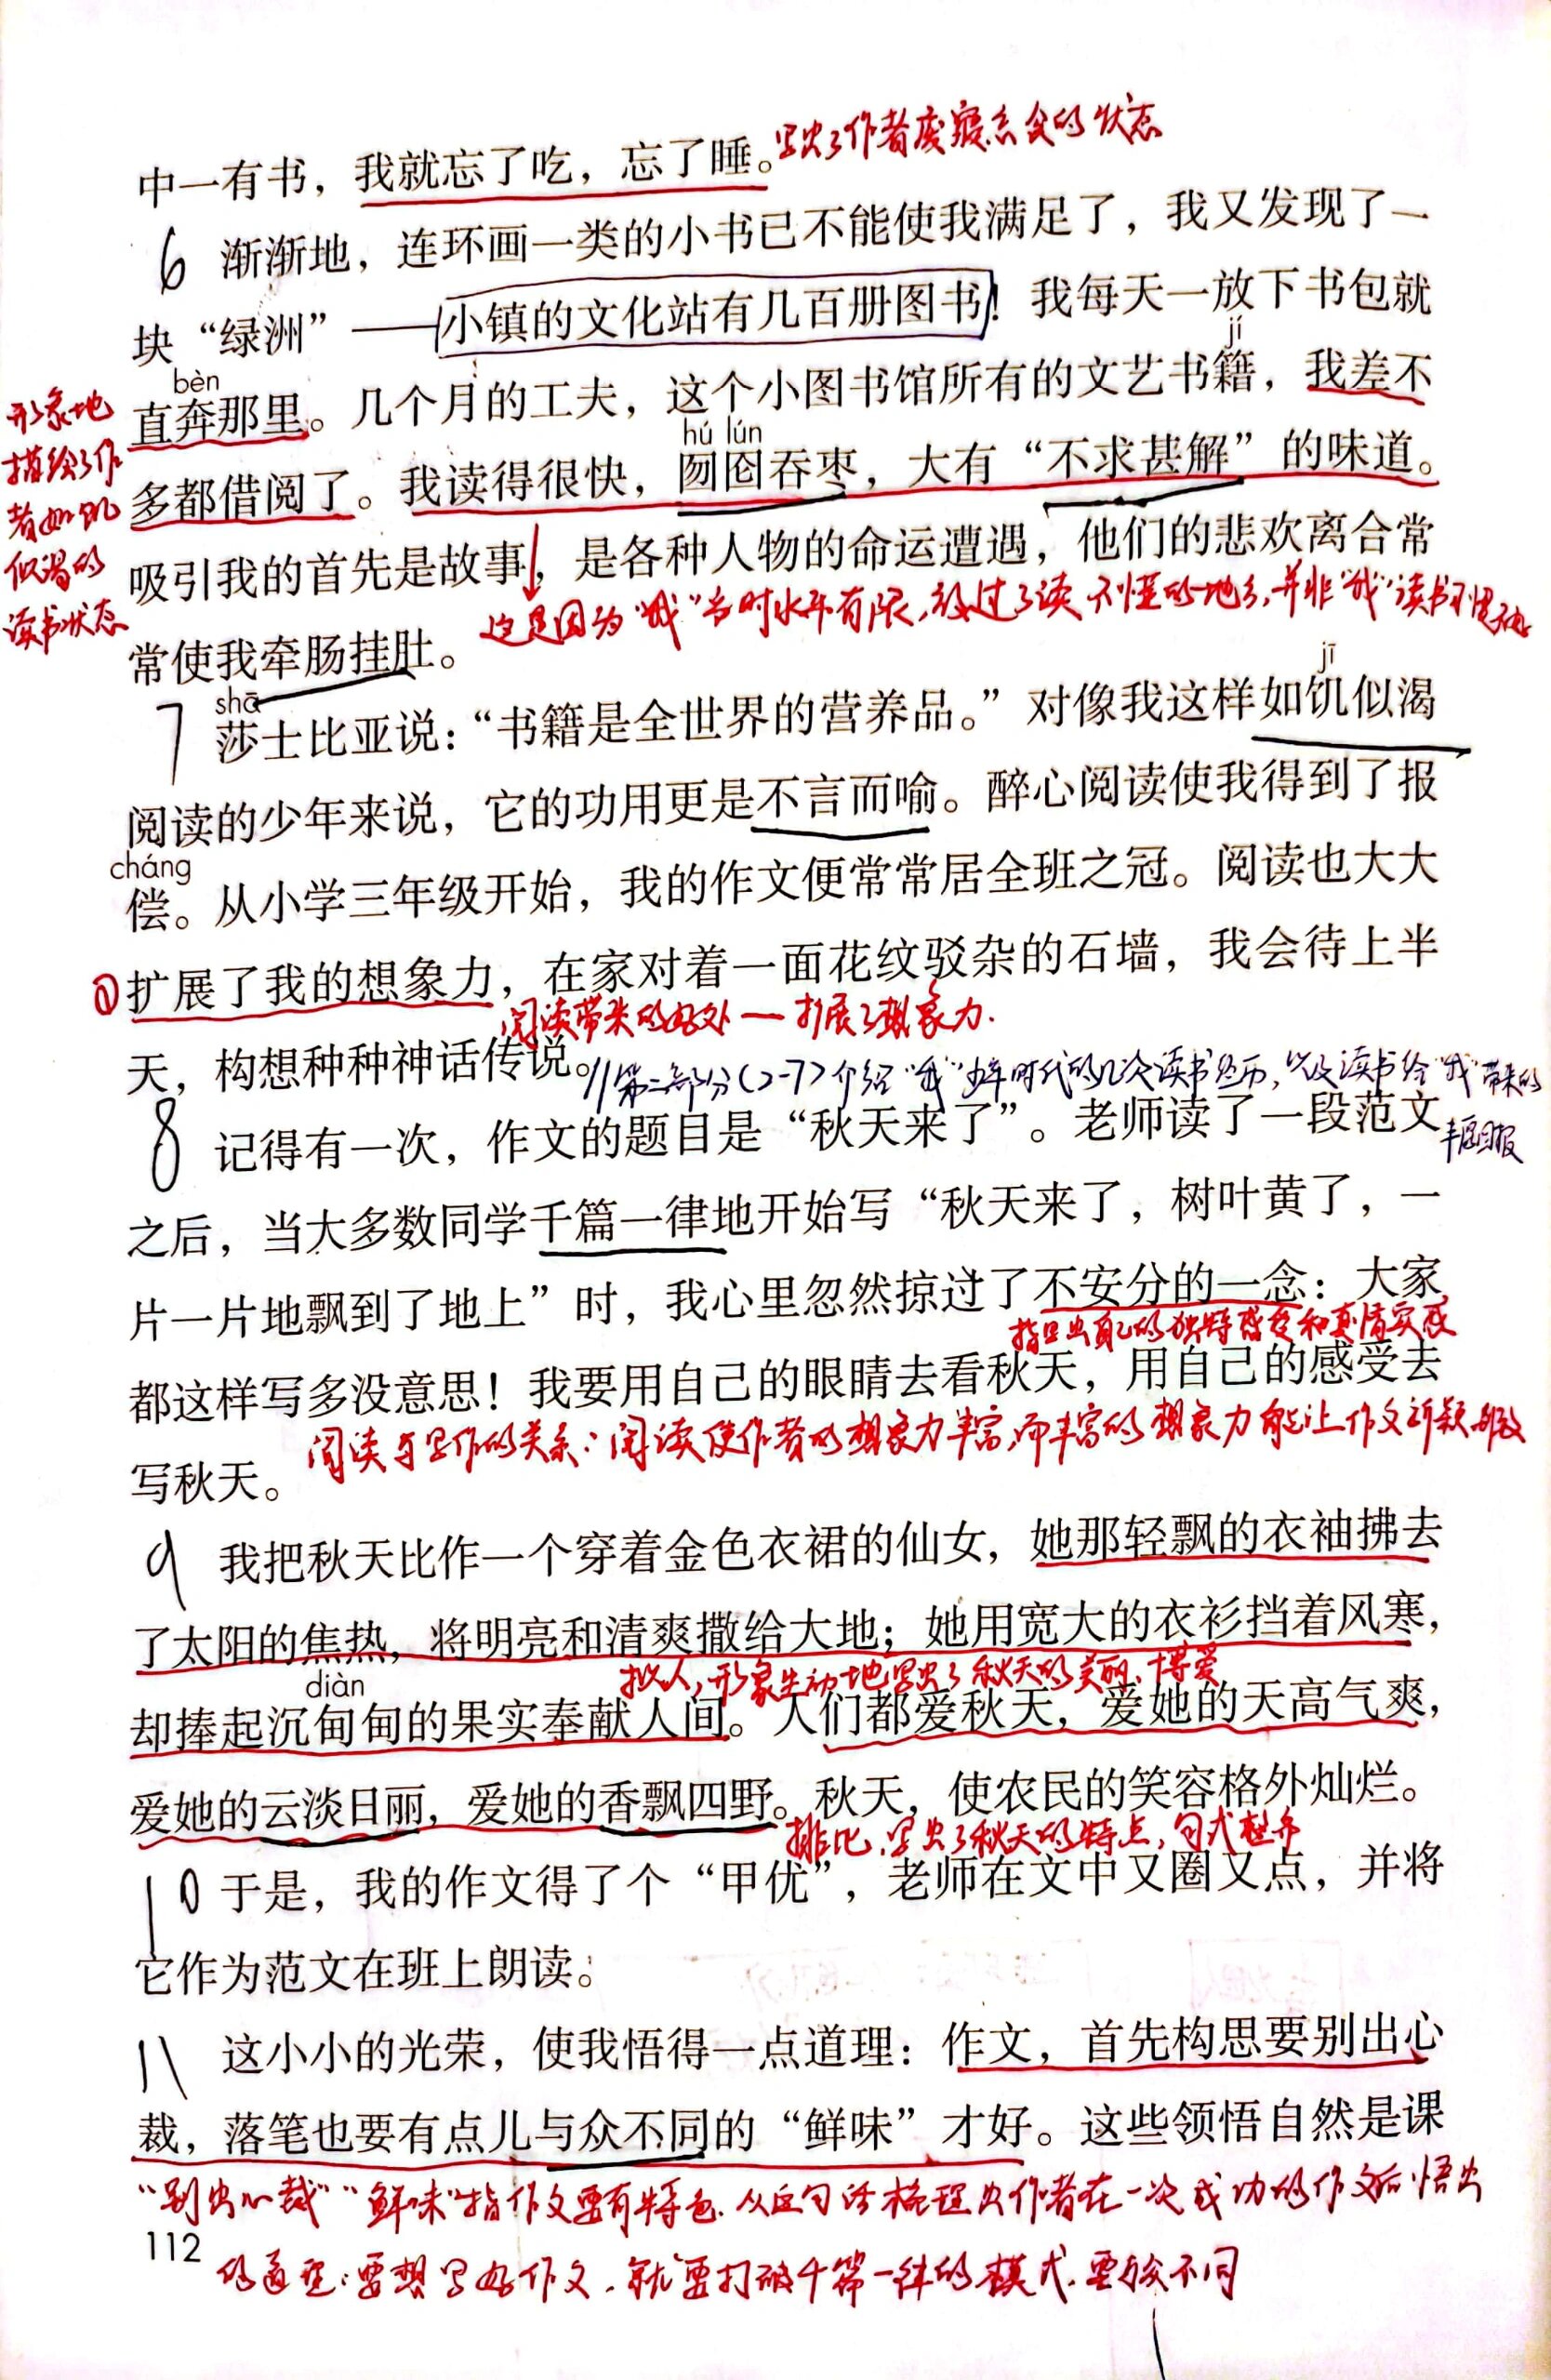 写出了作者废寝忘食的状态
中一有书，我就忘了吃，忘了睡。
6 渐渐地，连环画一类的小书已不能使我满足了，我又发现了一
块“绿洲”——小镇的文化站有几百册图书！我每天一放下书包就
bèn
jí
直奔那里。几个月的工夫，这个小图书馆所有的文艺书籍，我差不
形象地
描绘了作
者如饥
似渴的
读书状态
hú lún
多都借阅了。我读得很快，囫囵吞枣，大有“不求甚解”的味道。
吸引我的首先是故事，是各种人物的命运遭遇，他们的悲欢离合常
这是因为“我”当时水平有限，放过了读不懂的地方，并非“我”读书不
常使我牵肠挂肚。
shā
jī
7 莎士比亚说：“书籍是全世界的营养品。”对像我这样如饥似渴
阅读的少年来说，它的功用更是不言而喻。醉心阅读使我得到了报
cháng
偿。从小学三年级开始，我的作文便常常居全班之冠。阅读也大大
①扩展了我的想象力，在家对着一面花纹驳杂的石墙，我会待上半
阅读带来的好处一扩展了想象力.
天，构想种种神话传说。
//第二部分(2-7)介绍“我”少年时代的几次读书经历，以及读书给“我”带来的
丰厚回报
8 记得有一次，作文的题目是“秋天来了”。老师读了一段范文
之后，当大多数同学千篇一律地开始写“秋天来了，树叶黄了，一
片一片地飘到了地上”时，我心里忽然掠过了不安分的一念：大家
指写出自己的独特感受和真情实感
都这样写多没意思！我要用自己的眼睛去看秋天，用自己的感受去
阅读与写作的关系：阅读使作者的想象力丰富，而丰富的想象力能让作文新颖别致
写秋天。
9 我把秋天比作一个穿着金色衣裙的仙女，她那轻飘的衣袖拂去
了太阳的焦热，将明亮和清爽撒给大地；她用宽大的衣衫挡着风寒，
拟人，形象生动地写出了秋天的美丽、博爱
diàn
却捧起沉甸甸的果实奉献人间。人们都爱秋天，爱她的天高气爽，
爱她的云淡日丽，爱她的香飘四野。秋天，使农民的笑容格外灿烂。
排比，写出了秋天的特点，句式整齐
10 于是，我的作文得了个“甲优”，老师在文中又圈又点，并将
它作为范文在班上朗读。
11 这小小的光荣，使我悟得一点道理：作文，首先构思要别出心
裁，落笔也要有点儿与众不同的“鲜味”才好。这些领悟自然是课
“别出心裁”“鲜味”指作文要有特色.从这句话梳理出作者在一次成功的作文后悟出
112
的道理：要想写好作文，就要打破千篇一律的模式，要与众不同